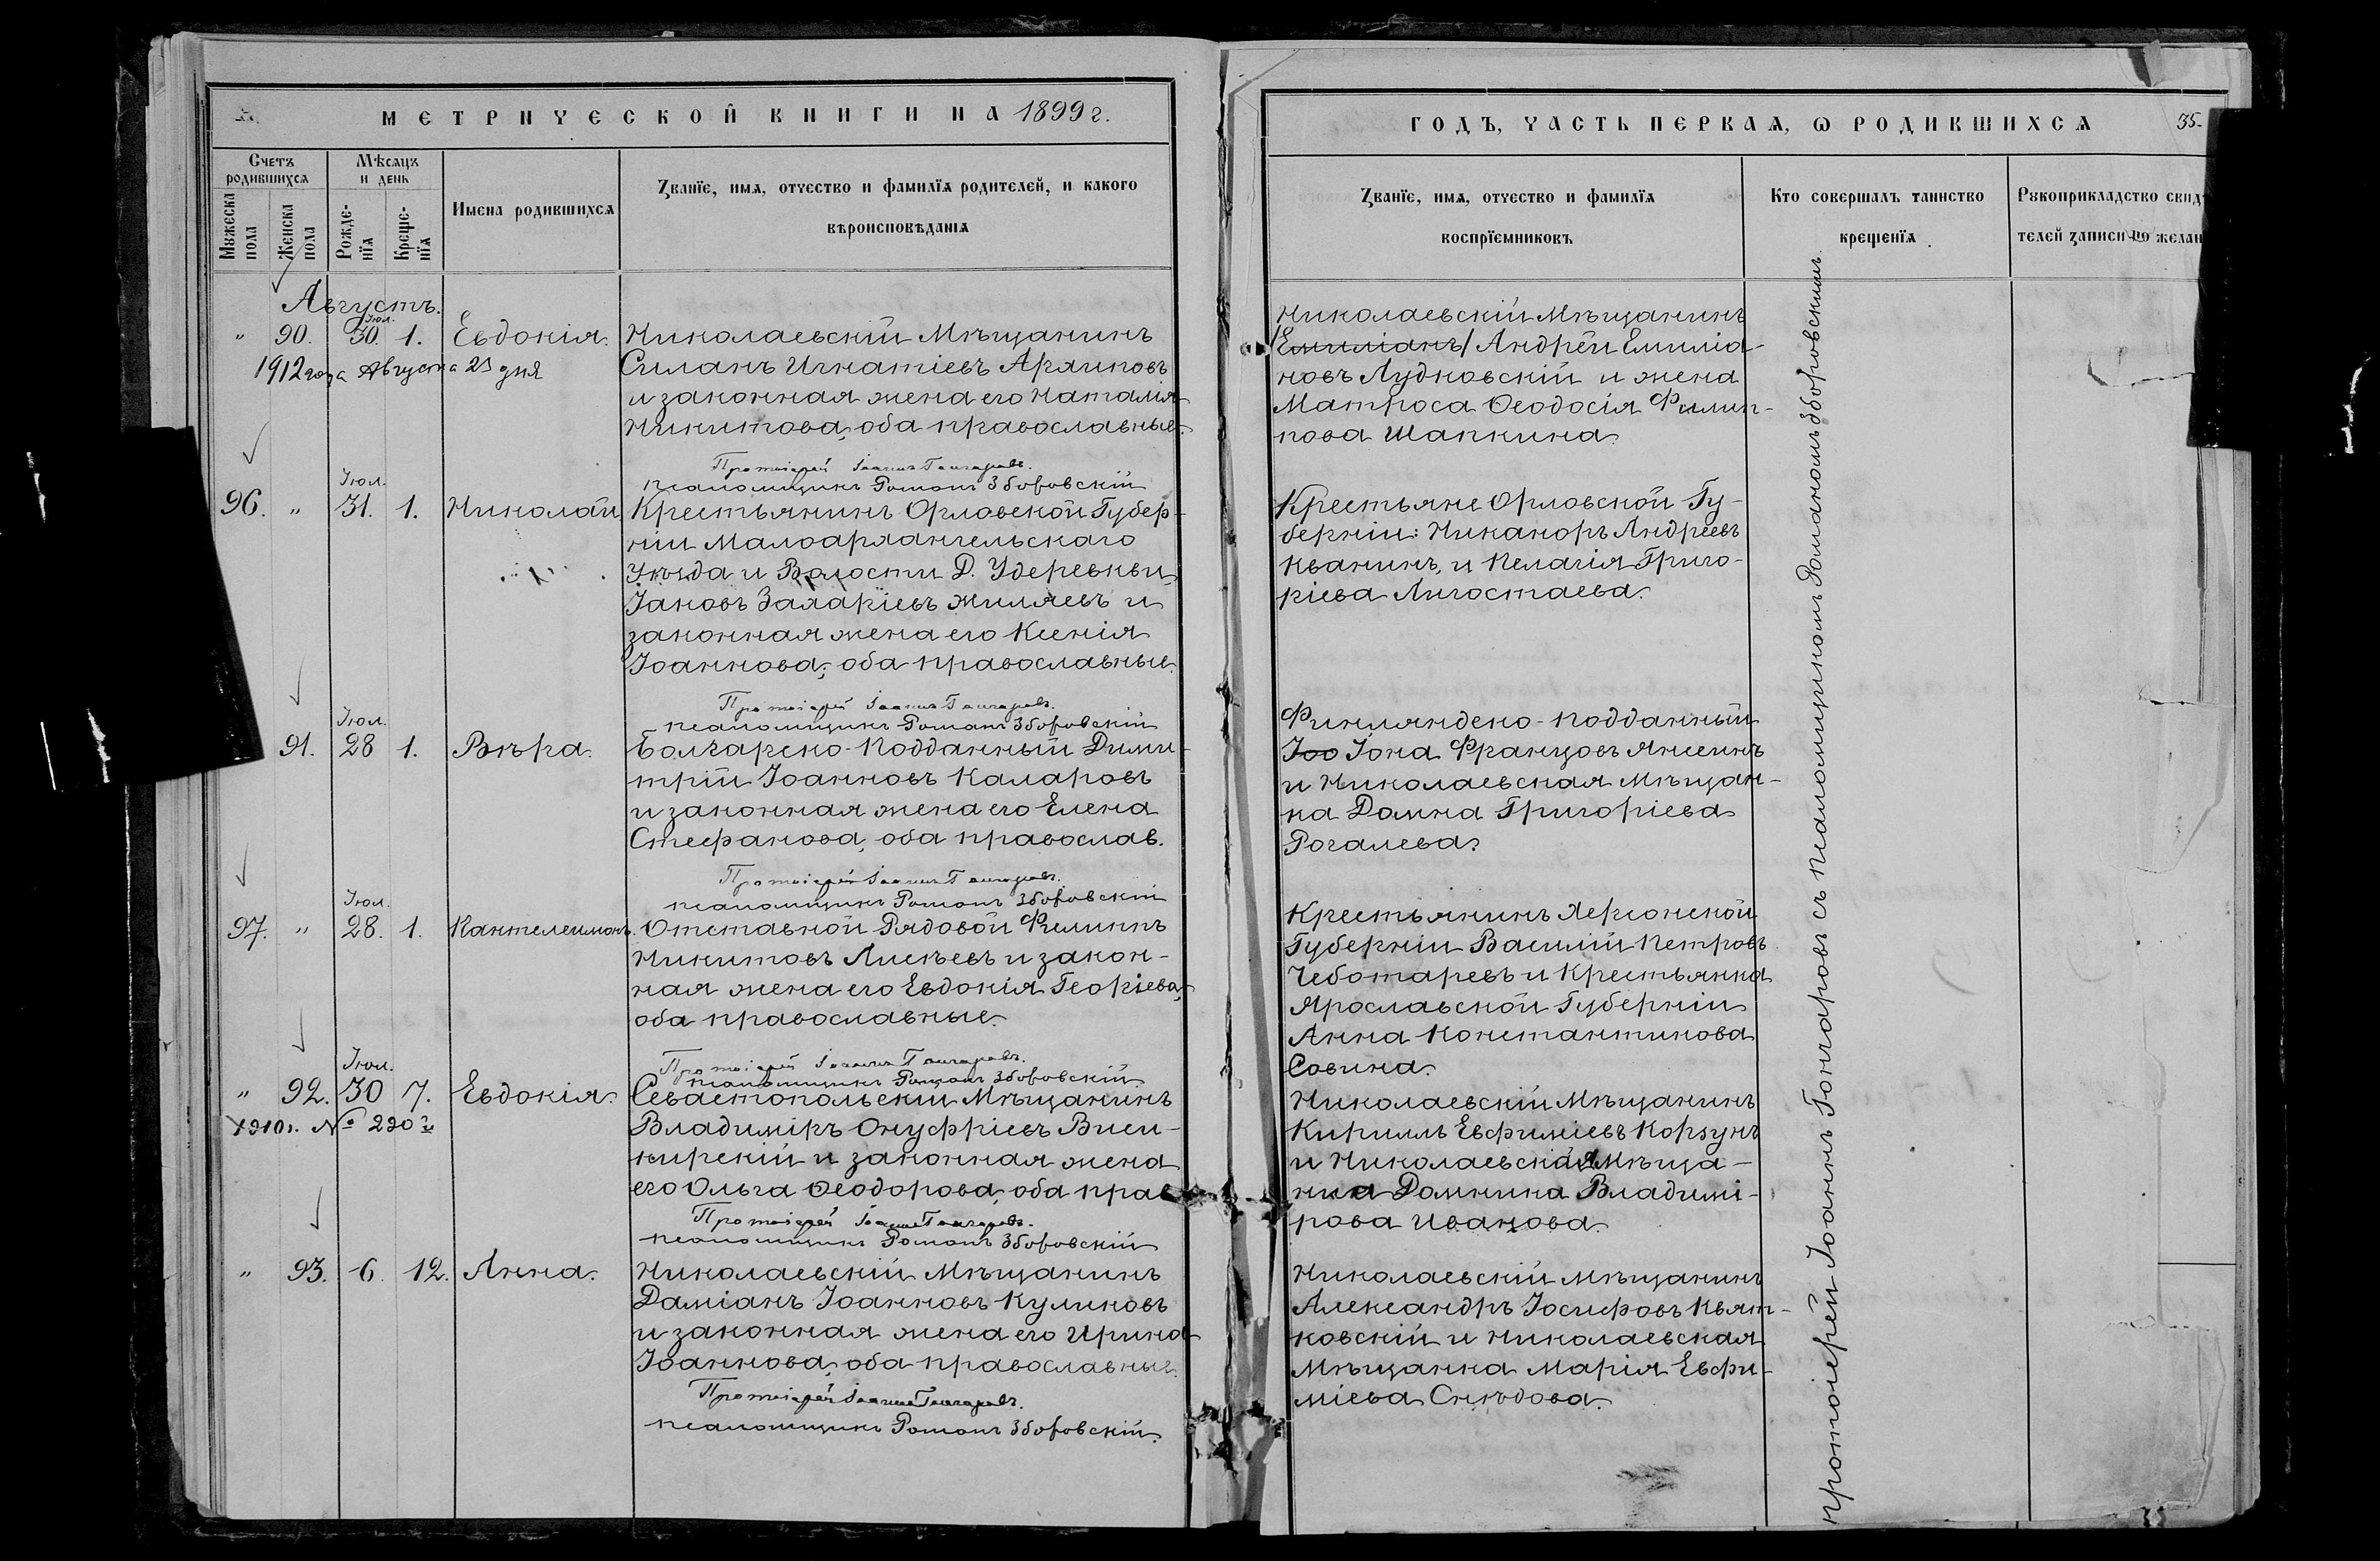 МЕТРИЧЕСКОЙ КНИГИ НА 1899 г.
Счетъ родившихся
Мѣсяцъ и день
Имена родившихся
Званїе, имя, отчество и фамилїя родителей, и какого
вѣроисповѣданїя
Мужеска пола
Женска пола
Рожденїя
Крещенїя
Августъ.
Іюл.
" 90. 30. 1. Евдокія. Николаевскій Мѣщанинъ
1912 года Августа 21 дня
Силанъ Игнатіевъ Архиповъ
и законная жена его Наталія
Никитова, оба православные.
Протоіерей Іоаннъ Гончаровъ.
псаломщикъ Романъ Зборовскій
Іюл.
96. " 31. 1. Николай Крестьянинъ Орловской Губер-
ніи Малоархангельскаго
Уѣзда и Волости Д. Удеревки,
Іаковъ Захаріевъ Жиляевъ и
законная жена его Ксенія
Іоаннова, оба православные.
Протоіерей Іоаннъ Гончаровъ.
псаломщикъ Романъ Зборовскій
Іюл.
91. 28 1. Вѣра. Болгарско-подданный Дими-
трій Іоанновъ Каларовъ
и законная жена его Елена
Стефанова, оба православ.
Протоіерей Іоаннъ Гончаровъ.
псаломщикъ Романъ Зборовскій
Іюл.
97. " 28. 1. Пантелеимонъ. Отставной Рядовой Филиппъ
Никитовъ Лисѣевъ и закон-
ная жена его Евдокія Георгіева,
оба православные.
Протоіерей Іоаннъ Гончаровъ.
псаломщикъ Романъ Зборовскій.
Іюл.
" 92. 30 7. Евдокія. Севастопольскій Мѣщанинъ
1910 г. № 290
Владиміръ Онуфріевъ Виси-
кирскій и законная жена
его Ольга Ѳеодорова, оба прав
Протоіерей Іоаннъ Гончаровъ.
псаломщикъ Романъ Зборовскій
" 93. 6. 12. Анна. Николаевскій Мѣщанинъ
Даміанъ Іоанновъ Куликовъ
и законная жена его Ирина
Іоаннова, оба православные.
Протоіерей Іоаннъ Гончаровъ.
псаломщикъ Романъ Зборовскій.
ГОДЪ, ЧАСТЬ ПЕРВАЯ, Ѡ РОДИВШИХСЯ
35.
Званїе, имя, отчество и фамилїя
воспрїемниковъ
Кто совершалъ таинство
крещенїя
Рукоприкладство свидѣ
телей записи по желан
Николаевскій Мѣщанинъ
/Емиліанъ/ Андрей Емиліа-
новъ Лудковскій и жена
Матроса Ѳеодосія Филип-
пова Шапкина.
Крестьяне Орловской Гу-
берніи: Никаноръ Андреевъ
Кванинъ, и Пелагія Григо-
ріева Лигостаева.
Финляндско-подданный
Іоо Іона Францовъ Янсинъ
и Николаевская Мѣщан-
ка Домна Григоріева
Рогалева.
Крестьянинъ Херсонской
Губерніи Василій Петровъ
Чеботаревъ и Крестьянка
Ярославской Губерніи
Анна Константинова
Совина.
Николаевскій Мѣщанинъ
Кириллъ Евфиміевъ Корзунъ
и Николаевская Мѣща-
нка Домника Владимі-
рова Иванова.
Николаевскій Мѣщанинъ
Александръ Іосифовъ Квят-
ковскій и Николаевская
Мѣщанка Марія Евфи-
міева Снѣдова.
протоіерей Іоаннъ Гончаровъ съ псаломщикомъ Романомъ Зборовскимъ.